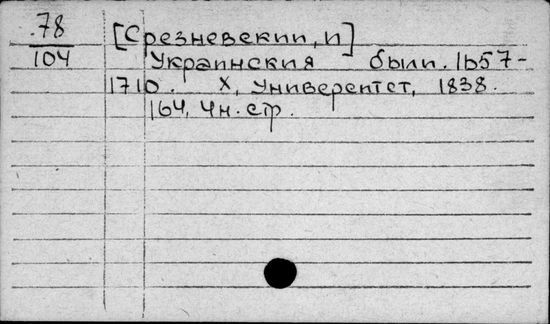 .78
104
[Срезневскии, И]
Украинския были. 1657-
1710. Х, Университет, 1838.
164, 4н. стр.